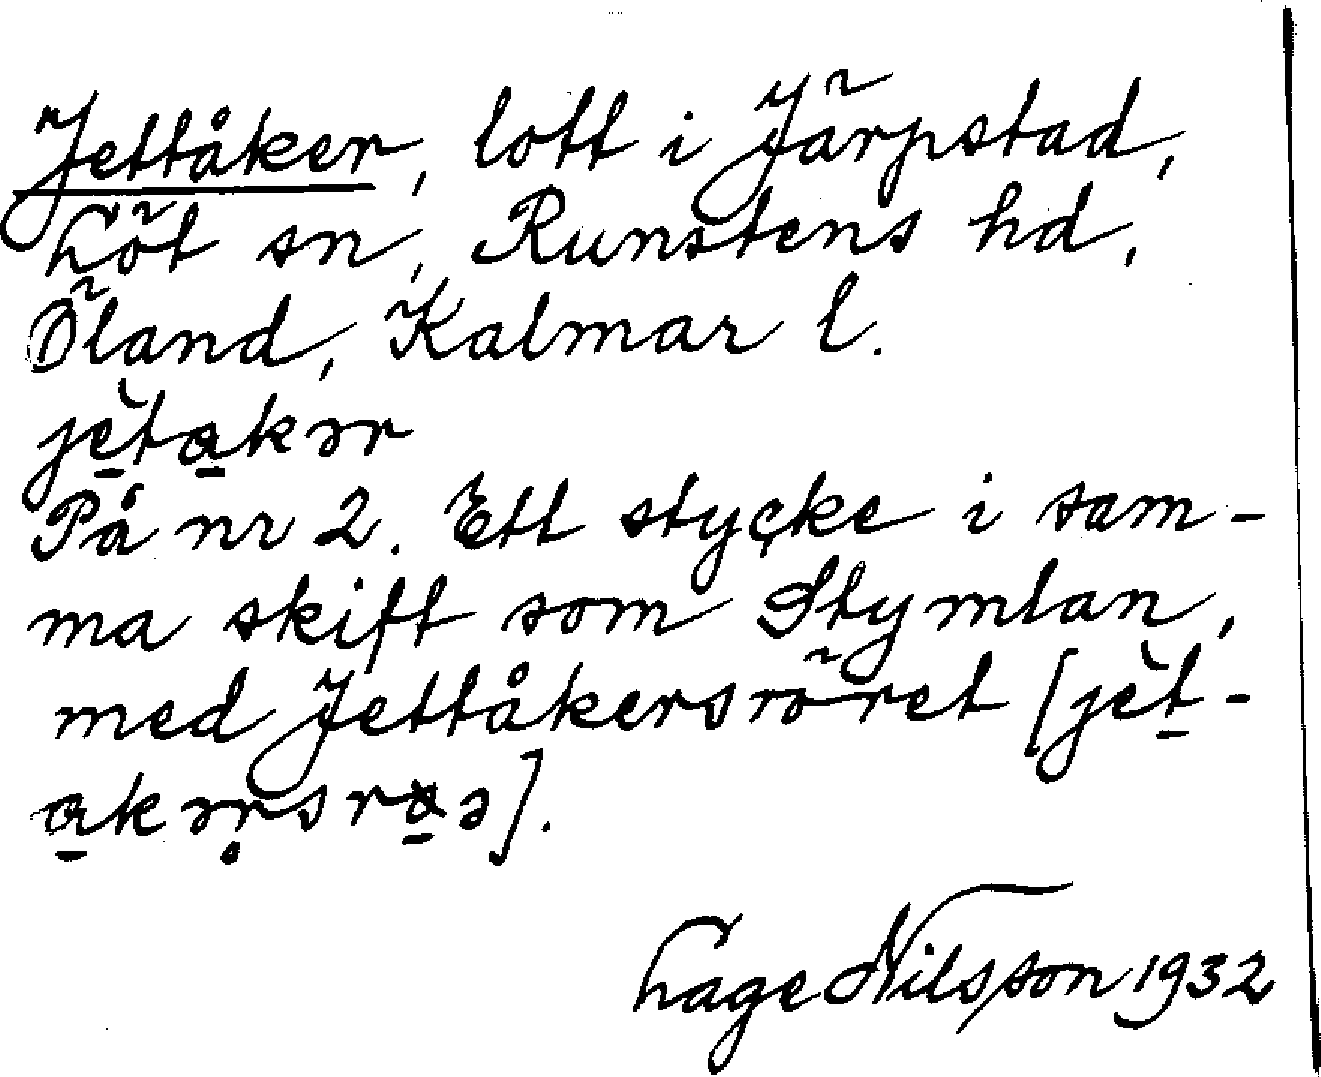 Jettåker, lott i Järpstad,
Löt sn, Runstens hd,
Öland, Kalmar l.
jètakər
På nr 2. Ett stycke i sam-
ma skift som Stymlan,
med Jettåkersröret [jèt-
akərsrøə].
Hage Nilsson 1932